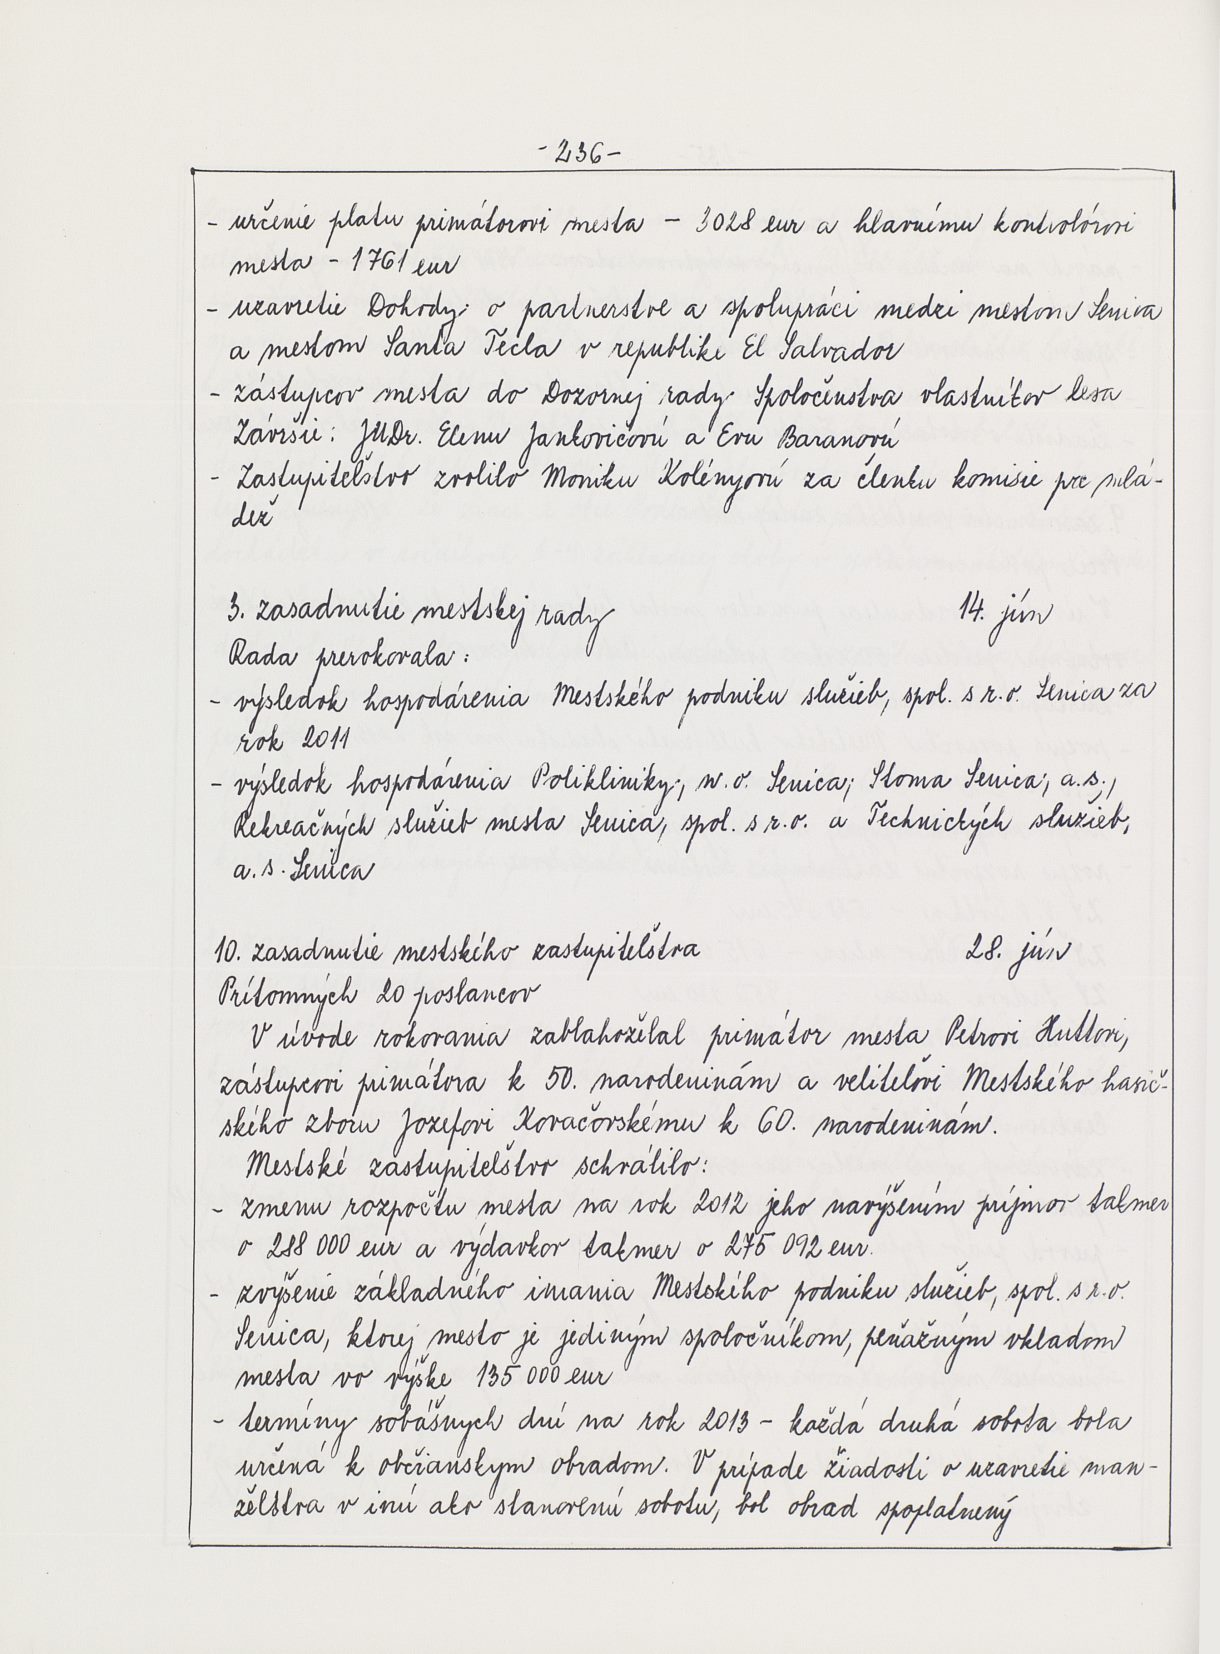 - 236 -
- určenie platu primátorovi mesta - 3028 eur a hlavnému kontrolórovi
mesta - 1761 eur
- uzavretie Dohody o partnerstve a spolupráci medzi mestom Senica
a mestom Santa Tecla v republike El Salvador
- zástupcov mesta do Dozornej rady Spoločenstva vlastníkov lesa
Závršie: JUDr. Elenu Jankovičovú a Evu Baranovú
- Zastupiteľstvo zvolilo Moniku Kolényovú za členku komisie pre mlá-
dež
3. zasadnutie mestskej rady 14. jún
Rada prerokovala:
- výsledok hospodárenia Mestského podniku služieb, spol. s r.o. Senica za
rok 2011
- výsledok hospodárenia Polikliniky, n.o. Senica, Stoma Senica, a.s.,
Rekreačných služieb mesta Senica, spol. s r.o. a Technických služieb,
a.s. Senica
10. zasadnutie mestského zastupiteľstva 28. jún
Prítomných 20 poslancov
V úvode rokovania zablahoželal primátor mesta Petrovi Huttovi,
zástupcovi primátora k 50. narodeninám a veliteľovi Mestského hasič-
ského zboru Jozefovi Kovačovskému k 60. narodeninám.
Mestské zastupiteľstvo schválilo:
- zmenu rozpočtu mesta na rok 2012 jeho navýšením príjmov takmer
o 288 000 eur a výdavkov takmer o 275 092 eur.
- zvýšenie základného imania Mestského podniku služieb, spol. s r.o.
Senica, ktorej mesto je jediným spoločníkom, peňažným vkladom
mesta vo výške 135 000 eur
- termíny sobášnych dní na rok 2013 - každá druhá sobota bola
určená k občianskym obradom. V prípade žiadosti o uzavretie man-
želstva v inú ako stanovenú sobotu, bol obrad spoplatnený